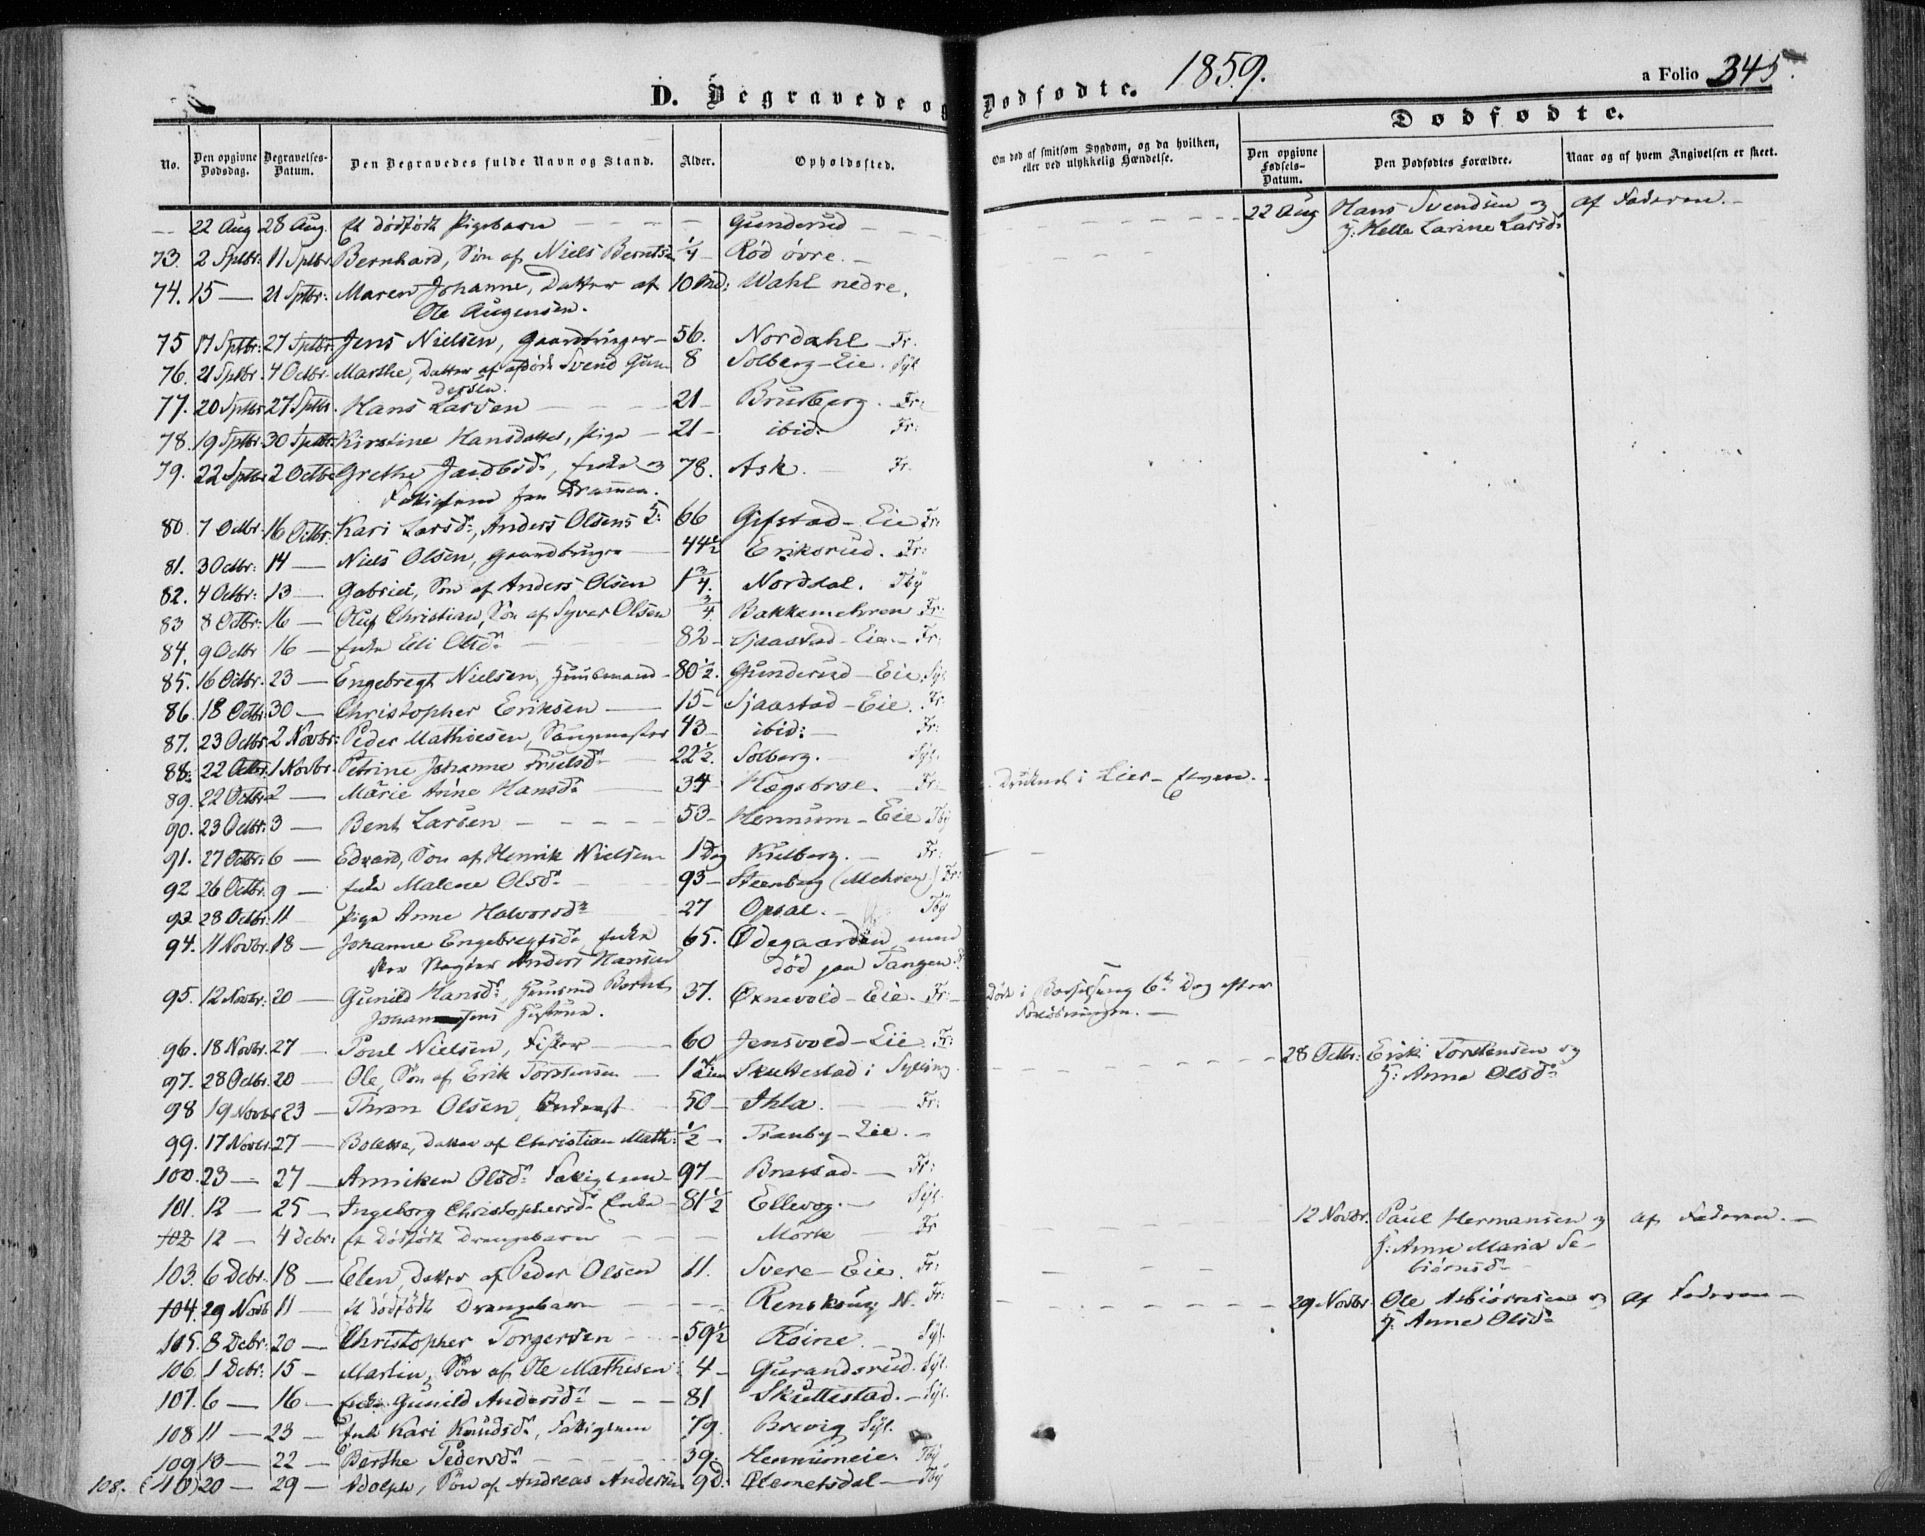 D. Begravede og Dødfødte. 1859. a Folio 345.
Dødfødte.
No. Den opgivne Dødsdag. Begravelses-Datum. Den Begravedes fulde Navn og Stand. Alder. Opholdssted. Om død af smitsom Sygdom, og da hvilken, eller ved ulykkelig Hændelse. Den opgivne Fødsels-Datum. Den Dødfødtes Forældre. Naar og af hvem Angivelsen er skeet.
22 Aug 28 Aug. Et dødfødt Pigebarn Gunderud 22 Aug Hans Svendsen og af Faderen.
H: Helle Larine Larsdr
73. 2 Sptbr: 11 Sptbr. Bernhard, Søn af Niels Berntsn 1/4 Rød øvre.
74. 15 — 21 Sptbr: Maren Johanne, Datter af 10 Md: Wahl nedre.
Ole Augensen.
75 17 Sptbr: 27 Sptbr. Jens Nielsen, Gaardbruger 56. Nordahl Fr.
76. 21 Sptbr. 4 Octbr. Marthe, Datter af afdøde Svend Gun- 8 Solberg-Eie. Syl
dersen.
77. 20 Sptbr 27 Sptbr. Hans Larsen 21 Brusberg. Fr:
78. 19 Sptbr. 30 Sptbr: Kirstine Hansdatter, Pige 21 ibid: Fr:
79. 22 Sptbr 2 Octbr Grethe Jacobsdr, Enke og 78. Ask. Fr.
Fattiglem fra Drammen.
80. 7 Octbr. 16 Octbr. Kari Larsdr, Anders Olsens H: 66 Gifstad-Eie Fr:
81. 3 Octbr: 14 — Niels Olsen, Gaardbruger 44½ Eriksrud. Fr:
82. 4 Octbr: 13 — Gabriel, Søn af Anders Olsen 1 3/4. Norddal. Tby
83 8 Octbr: 16 — Oluf Christian, Søn af Syver Olsen 3/4. Bakkemehren Fr:
84. 9 Octbr 16 — Enke Eli Olsdr 82 Sjaastad-Eie. Fr:
85. 16 Octbr. 23 — Engebregt Nielsen, Huusmand 80½. Gunderud-Eie. Syl.
86. 18 Octbr 30 — Christopher Eriksen 15 Sjaastad-Eie. Fr.
87. 23 Octbr. 2 Novbr: Peder Mathiesen, 43 ibid: Fr:
88. 22 Octbr. 1 Novbr. Petrine Johanne Truelsdr 22½. Solberg. Syl.
89. 22 Octbr 2 — Marie Anne Hansdr 34 Hægsbroe. Fr: Druknet i Lier-Elven.
90. 23 Octbr. 3 — Bent Larsen 53 Hennum-Eie Tby
91. 27 Octbr. 6 — Edvard, Søn af Henrik Nielsen 1 Dag Kielberg. Fr:
92 26 Octbr. 9 — Enke Malene Olsdr 93 Steenberg (Mehren) Fr:
92 28 Octbr. 11 Pige Anne Halvorsdr 27 Opsal. Tby
94. 11 Novbr. 18 — Johanne Engebregtsdr, Enke 65. Ødegaarden, men
Anders Hansen død paa Tangen
95. 12 Novbr: 20 — Gunild Hansdr, Huusmd Bernt 37. Oxnevold-Eie. Fr: Død i Barselseng 6te Dag efter
Johannesens Hustrue. Forløsningen.
96. 18 Novbr. 27 — Poul Nielsen, Fisker 60 Jensvold-Eie Fr:
97. 28 Octbr. 20 — Ole, Søn af Erik Torstensen 1 Time Skuttestad i Sylling 28 Octbr: Erik Torstensen og
H: Anne Olsdr
98 19 Novbr 23 — Thron Olsen, 50 Ihla. Fr:
99. 17 Novbr. 27 — Bolette, Datter af Christian Math: 1/2 Tranby-Eie.
100. 23 — 27 — Anniken Olsdr Fattiglem 97 Brastad. Fr:
101. 12 — 25 — Ingeborg Christophersdr Enke 81½ Ellevog. Syl.
102 12 — 4 Debr: Et dødfødt Drengebarn Mørk Fr 12 Novbr. Paul Hermansen og af Faderen.
H: Anne Maria Se-
biørnsdr
103. 6 Debr. 18 — Elen, Datter af Peder Olsen 11. Svere-Eie. Fr:
104. 29 Novb 11 — et dødfødt Drengebarn Renskaug N. Fr: 29 Novbr Ole Asbiørnsen og af Faderen
H: Anne Olsdr
105. 8 Debr. 20 — Christopher Torgersen 59½ Røine. Syl.
106. 1 Debr: 15 — Martin, Søn af Ole Mathisen 4 Gurandsrud. Syl.
107. 6 — 16 — Enke Gunild Andersdr 81 Skuttestad. Syl.
108 11 — 23 — Enke Kari Knudsdr, Fattiglem 79. Brevig Syl.
109 13 — 22 — Berthe Pedersdr 39. Hennumeie. Tby
108. (110) 20 — 29 — Adolph, Søn af Andreas Andersen 9 D: Clemetsdal Tby